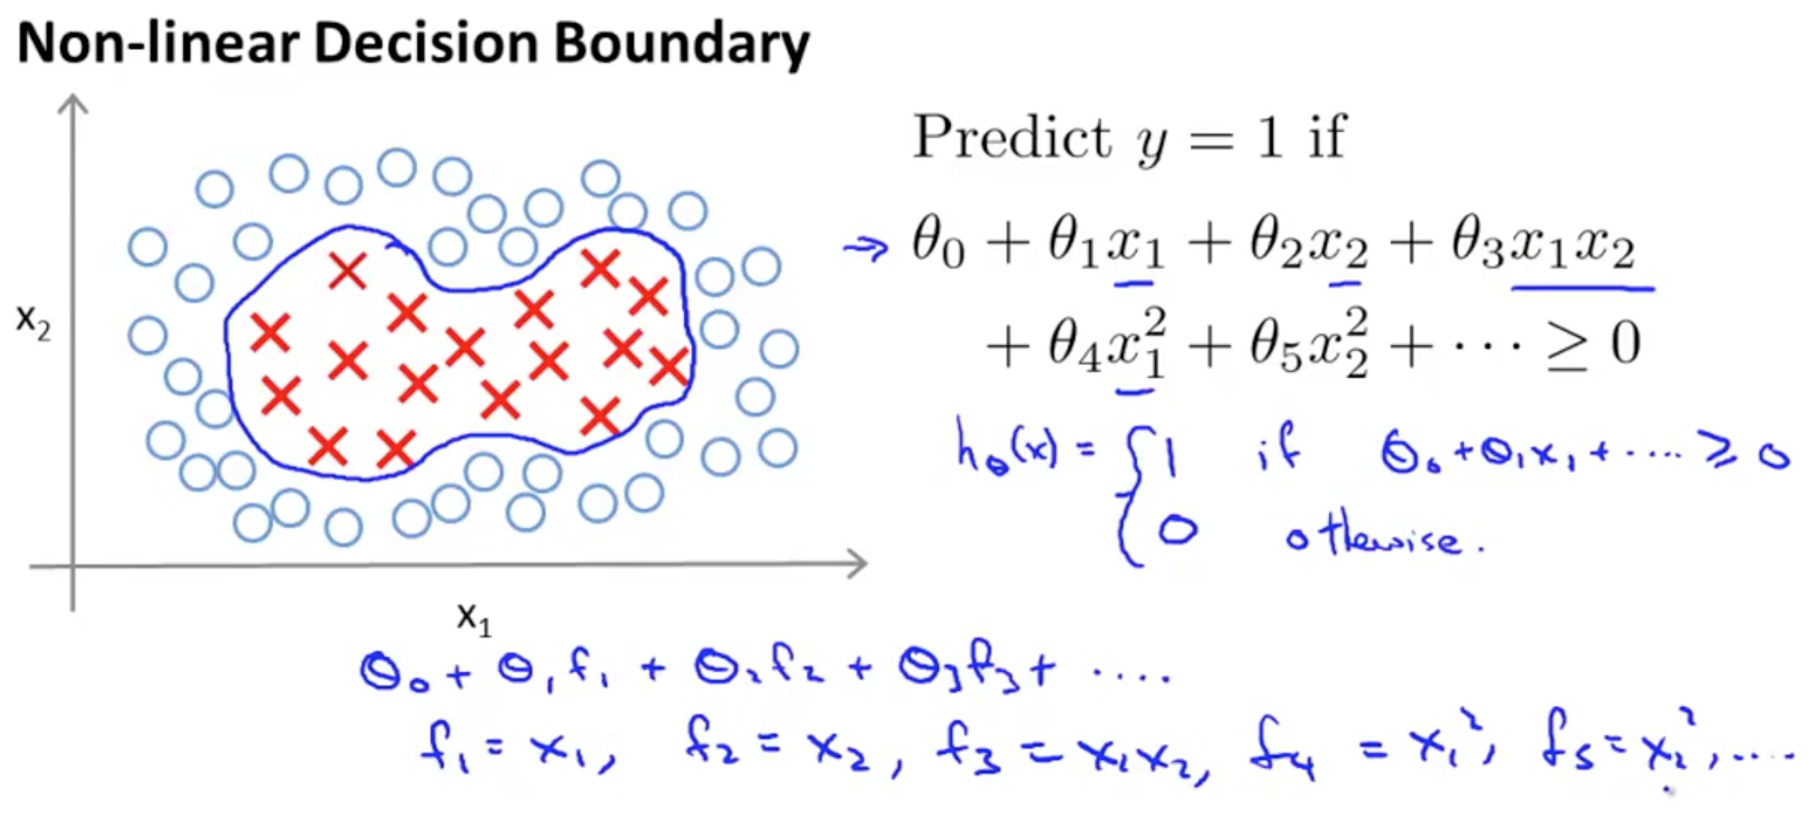 Non-linear Decision Boundary
x₂
x₁
Predict y = 1 if
→ θ₀ + θ₁x₁ + θ₂x₂ + θ₃x₁x₂
+ θ₄x₁² + θ₅x₂² + ⋯ ≥ 0
h_θ(x) = { 1 if θ₀ + θ₁x₁ + .... ≥ 0
0 otherwise.
θ₀ + θ₁f₁ + θ₂f₂ + θ₃f₃ + ....
f₁ = x₁, f₂ = x₂, f₃ = x₁x₂, f₄ = x₁², f₅ = x₂², ....